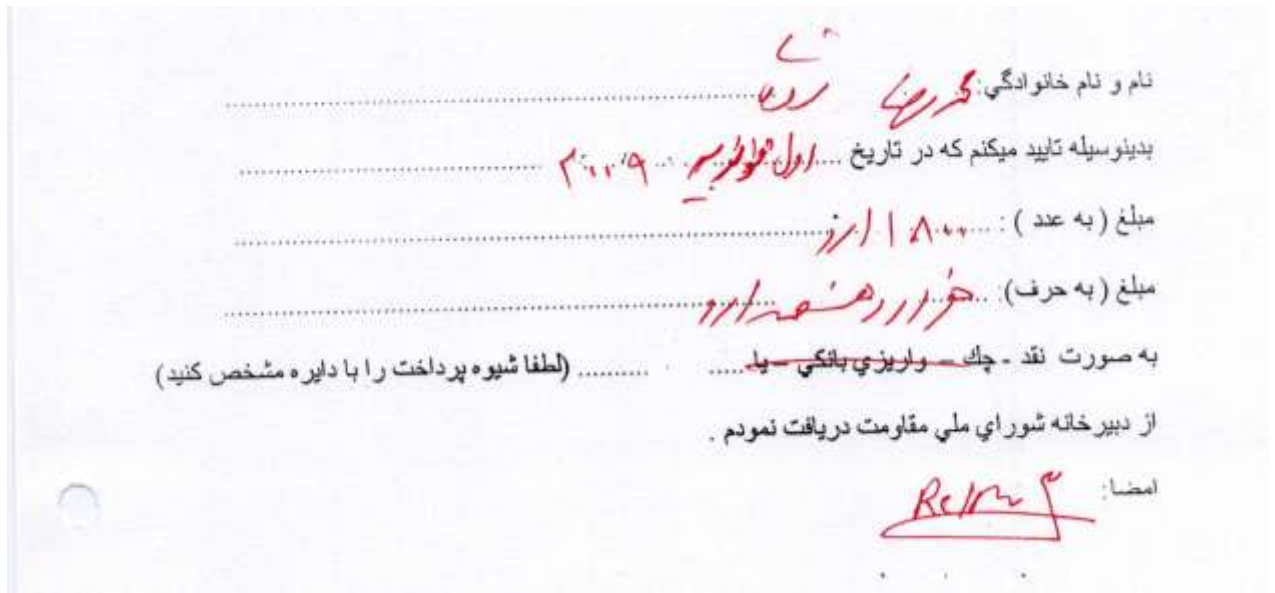 نام و نام خانوادگي: محمد رضا
بدينوسيله تاييد ميكنم كه در تاريخ ..... اول ..... ۲۰۰۹ .....
مبلغ ( به عدد ) : ..... ۱۸۰۰ .....
مبلغ ( به حرف): ..... هزار و هشتصد ارو .....
به صورت نقد - چك – واريزي بانكي – يا ..... .......... (لطفا شيوه پرداخت را با دايره مشخص كنيد)
از دبيرخانه شوراي ملي مقاومت دريافت نمودم .
امضا: